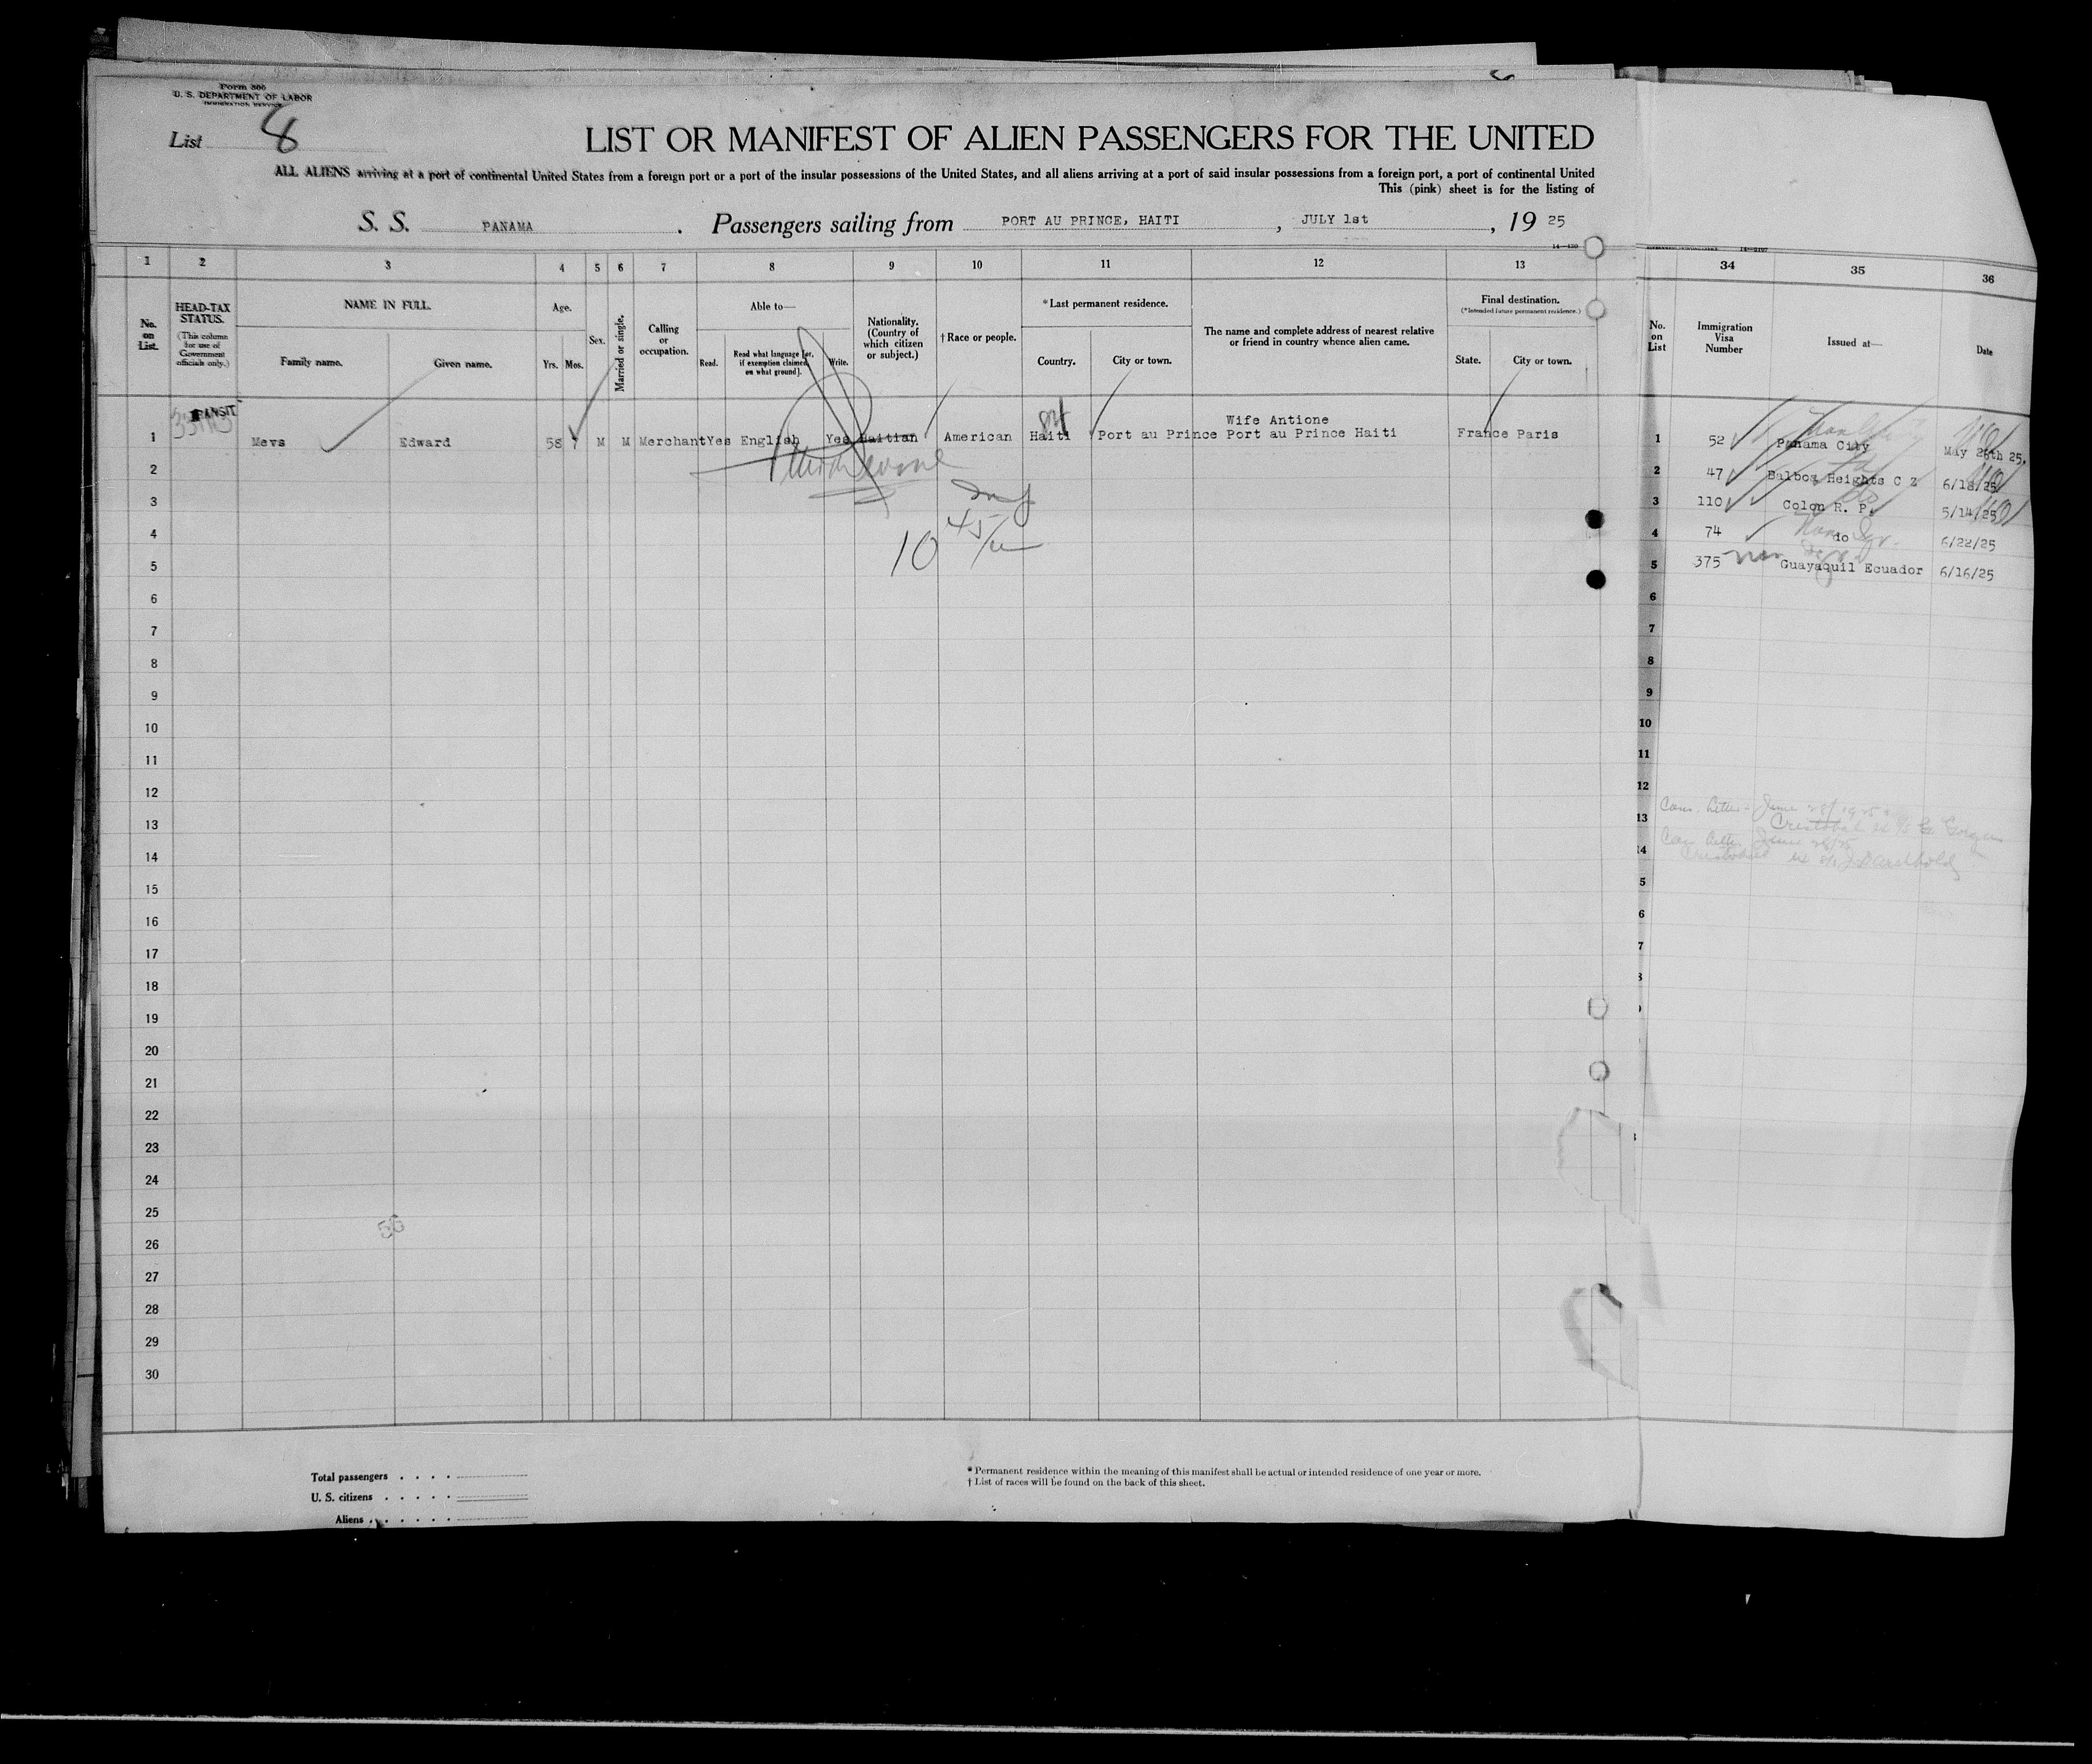 Form 500
U. S. DEPARTMENT OF LABOR
IMMIGRATION SERVICE
List 8
LIST OR MANIFEST OF ALIEN PASSENGERS FOR THE UNITED
ALL ALIENS arriving at a port of continental United States from a foreign port or a port of the insular possessions of the United States, and all aliens arriving at a port of said insular possessions from a foreign port, a port of continental United
This (pink) sheet is for the listing of
S. S. PANAMA. Passengers sailing from PORT AU PRINCE, HAITI, JULY 1st, 19 25
1 2 3 4 5 6 7 8 9 10 11 12 13
No. on List.
HEAD-TAX STATUS.
(This column for use of Government officials only.)
NAME IN FULL.
Family name. Given name.
Age.
Yrs. Mos.
Sex.
Married or single.
Calling or occupation.
Able to—
Read. Read what language [or, if exemption claimed, on what ground]. Write.
Nationality. (Country of which citizen or subject.)
† Race or people.
* Last permanent residence.
Country. City or town.
The name and complete address of nearest relative or friend in country whence alien came.
Final destination.
(* Intended future permanent residence.)
State. City or town.
TRANSIT
Wife Antione
1 Mevs Edward 58 7 M M Merchant Yes English Yes Haitian American Haiti Port au Prince Port au Prince Haiti France Paris
2
3
4
10 45/
5
6
7
8
9
10
11
12
13
14
15
16
17
18
19
20
21
22
23
24
25
55
26
27
28
29
30
Total passengers
U. S. citizens
Aliens
* Permanent residence within the meaning of this manifest shall be actual or intended residence of one year or more.
† List of races will be found on the back of this sheet.
34 35 36
No. on List
Immigration Visa Number
Issued at—
Date
1 52 Panama City May 26th 25.
2 47 Balboa Heights C Z 6/18/25
3 110 Colon R. P. 5/14/25
4 74 do 6/22/25
5 375 Guayaquil Ecuador 6/16/25
6
7
8
9
10
11
12
13
14
5
6
7